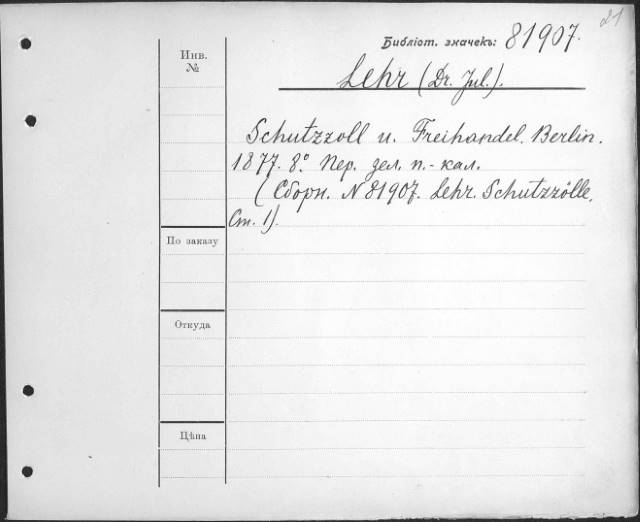 21
Библіот. значекъ: 81907.
Инв.
№
Lehr (Dr. Jul.).
Schutzzoll u. Freihandel. Berlin.
1877. 8.° Пер. зел. п.-кал.
(Сборн. N 81907. Lehr. Schutzzölle,
Ст. 1).
По заказу
Откуда
Цѣна